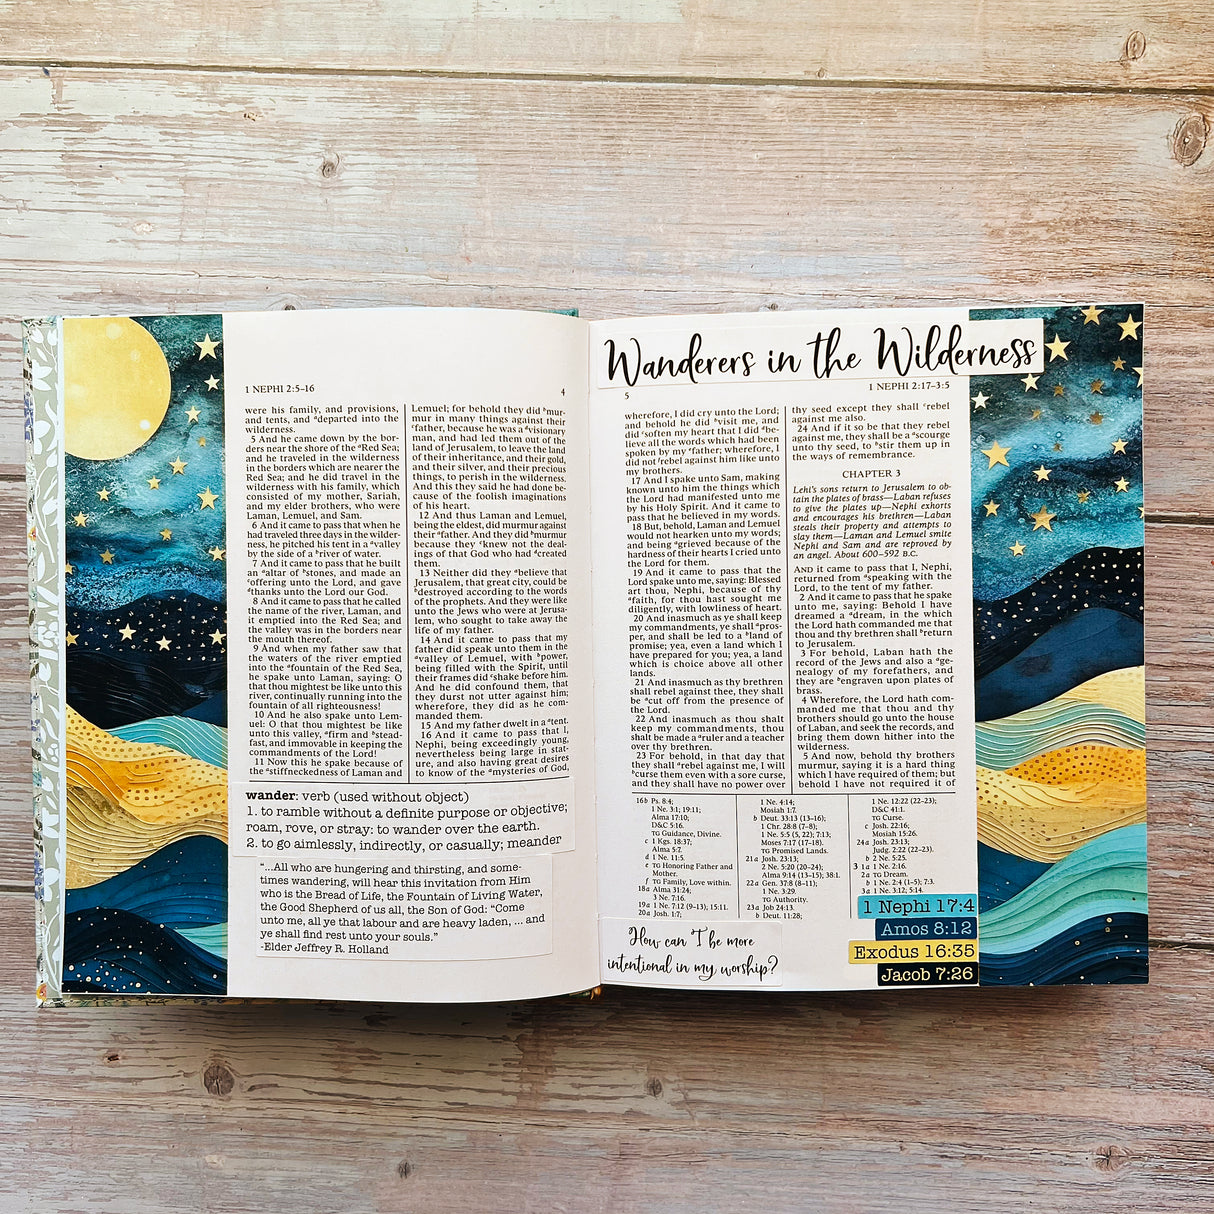 1 NEPHI 2:5–16
4
were his family, and provisions,
and tents, and ᵃdeparted into the
wilderness.
5 And he came down by the bor-
ders near the shore of the ᵃRed Sea;
and he traveled in the wilderness
in the borders which are nearer the
Red Sea; and he did travel in the
wilderness with his family, which
consisted of my mother, Sariah,
and my elder brothers, who were
Laman, Lemuel, and Sam.
6 And it came to pass that when he
had traveled three days in the wilder-
ness, he pitched his tent in a ᵃvalley
by the side of a ᵇriver of water.
7 And it came to pass that he built
an ᵃaltar of ᵇstones, and made an
ᶜoffering unto the Lord, and gave
ᵈthanks unto the Lord our God.
8 And it came to pass that he called
the name of the river, Laman, and
it emptied into the Red Sea; and
the valley was in the borders near
the mouth thereof.
9 And when my father saw that
the waters of the river emptied
into the ᵃfountain of the Red Sea,
he spake unto Laman, saying: O
that thou mightest be like unto this
river, continually running into the
fountain of all righteousness!
10 And he also spake unto Lem-
uel: O that thou mightest be like
unto this valley, ᵃfirm and ᵇstead-
fast, and immovable in keeping the
commandments of the Lord!
11 Now this he spake because of
the ᵃstiffneckedness of Laman and
Lemuel; for behold they did ᵇmur-
mur in many things against their
ᶜfather, because he was a ᵈvisionary
man, and had led them out of the
land of Jerusalem, to leave the land
of their inheritance, and their gold,
and their silver, and their precious
things, to perish in the wilderness.
And this they said he had done be-
cause of the foolish imaginations
of his heart.
12 And thus Laman and Lemuel,
being the eldest, did murmur against
their ᵃfather. And they did ᵇmurmur
because they ᶜknew not the deal-
ings of that God who had ᵈcreated
them.
13 Neither did they ᵃbelieve that
Jerusalem, that great city, could be
ᵇdestroyed according to the words
of the prophets. And they were like
unto the Jews who were at Jerusa-
lem, who sought to take away the
life of my father.
14 And it came to pass that my
father did speak unto them in the
ᵃvalley of Lemuel, with ᵇpower,
being filled with the Spirit, until
their frames did ᶜshake before him.
And he did confound them, that
they durst not utter against him;
wherefore, they did as he com-
manded them.
15 And my father dwelt in a ᵃtent.
16 And it came to pass that I,
Nephi, being exceedingly young,
nevertheless being large in stat-
ure, and also having great desires
to know of the ᵃmysteries of God,
wander: verb (used without object)
1. to ramble without a definite purpose or objective;
roam, rove, or stray: to wander over the earth.
2. to go aimlessly, indirectly, or casually; meander
“...All who are hungering and thirsting, and some-
times wandering, will hear this invitation from Him
who is the Bread of Life, the Fountain of Living Water,
the Good Shepherd of us all, the Son of God: “Come
unto me, all ye that labour and are heavy laden, ... and
ye shall find rest unto your souls.”
-Elder Jeffrey R. Holland
Wanderers in the Wilderness
5
1 NEPHI 2:17–3:5
wherefore, I did cry unto the Lord;
and behold he did ᵇvisit me, and
did ᶜsoften my heart that I did ᵈbe-
lieve all the words which had been
spoken by my ᵉfather; wherefore, I
did not ᶠrebel against him like unto
my brothers.
17 And I spake unto Sam, making
known unto him the things which
the Lord had manifested unto me
by his Holy Spirit. And it came to
pass that he believed in my words.
18 But, behold, Laman and Lemuel
would not hearken unto my words;
and being ᵃgrieved because of the
hardness of their hearts I cried unto
the Lord for them.
19 And it came to pass that the
Lord spake unto me, saying: Blessed
art thou, Nephi, because of thy
ᵃfaith, for thou hast sought me
diligently, with lowliness of heart.
20 And inasmuch as ye shall keep
my commandments, ye shall ᵃpros-
per, and shall be led to a ᵇland of
promise; yea, even a land which I
have prepared for you; yea, a land
which is choice above all other
lands.
21 And inasmuch as thy brethren
shall rebel against thee, they shall
be ᵃcut off from the presence of
the Lord.
22 And inasmuch as thou shalt
keep my commandments, thou
shalt be made a ᵃruler and a teacher
over thy brethren.
23 For behold, in that day that
they shall ᵃrebel against me, I will
ᵇcurse them even with a sore curse,
and they shall have no power over
thy seed except they shall ᶜrebel
against me also.
24 And if it so be that they rebel
against me, they shall be a ᵃscourge
unto thy seed, to ᵇstir them up in
the ways of remembrance.
CHAPTER 3
Lehi’s sons return to Jerusalem to ob-
tain the plates of brass—Laban refuses
to give the plates up—Nephi exhorts
and encourages his brethren—Laban
steals their property and attempts to
slay them—Laman and Lemuel smite
Nephi and Sam and are reproved by
an angel. About 600–592 B.C.
AND it came to pass that I, Nephi,
returned from ᵃspeaking with the
Lord, to the tent of my father.
2 And it came to pass that he spake
unto me, saying: Behold I have
dreamed a ᵃdream, in the which
the Lord hath commanded me that
thou and thy brethren shall ᵇreturn
to Jerusalem.
3 For behold, Laban hath the
record of the Jews and also a ᵃge-
nealogy of my forefathers, and
they are ᵇengraven upon plates of
brass.
4 Wherefore, the Lord hath com-
manded me that thou and thy
brothers should go unto the house
of Laban, and seek the records, and
bring them down hither into the
wilderness.
5 And now, behold thy brothers
murmur, saying it is a hard thing
which I have required of them; but
behold I have not required it of
16b Ps. 8:4;
1 Ne. 3:1; 19:11;
Alma 17:10;
D&C 5:16.
TG Guidance, Divine.
c 1 Kgs. 18:37;
Alma 5:7.
d 1 Ne. 11:5.
e TG Honoring Father and
Mother.
f TG Family, Love within.
18a Alma 31:24;
3 Ne. 7:16.
19a 1 Ne. 7:12 (9–13); 15:11.
20a Josh. 1:7;
1 Ne. 4:14;
Mosiah 1:7.
b Deut. 33:13 (13–16);
1 Chr. 28:8 (7–8);
1 Ne. 5:5 (5, 22); 7:13;
Moses 7:17 (17–18).
TG Promised Lands.
21a Josh. 23:13;
2 Ne. 5:20 (20–24);
Alma 9:14 (13–15); 38:1.
22a Gen. 37:8 (8–11);
1 Ne. 3:29.
TG Authority.
23a Job 24:13.
b Deut. 11:28;
1 Ne. 12:22 (22–23);
D&C 41:1.
TG Curse.
c Josh. 22:16;
Mosiah 15:26.
24a Josh. 23:13;
Judg. 2:22 (22–23).
b 2 Ne. 5:25.
3 1a 1 Ne. 2:16.
2a TG Dream.
b 1 Ne. 2:4 (1–5); 7:3.
3a 1 Ne. 3:12; 5:14.
How can I be more
intentional in my worship?
1 Nephi 17:4
Amos 8:12
Exodus 16:35
Jacob 7:26